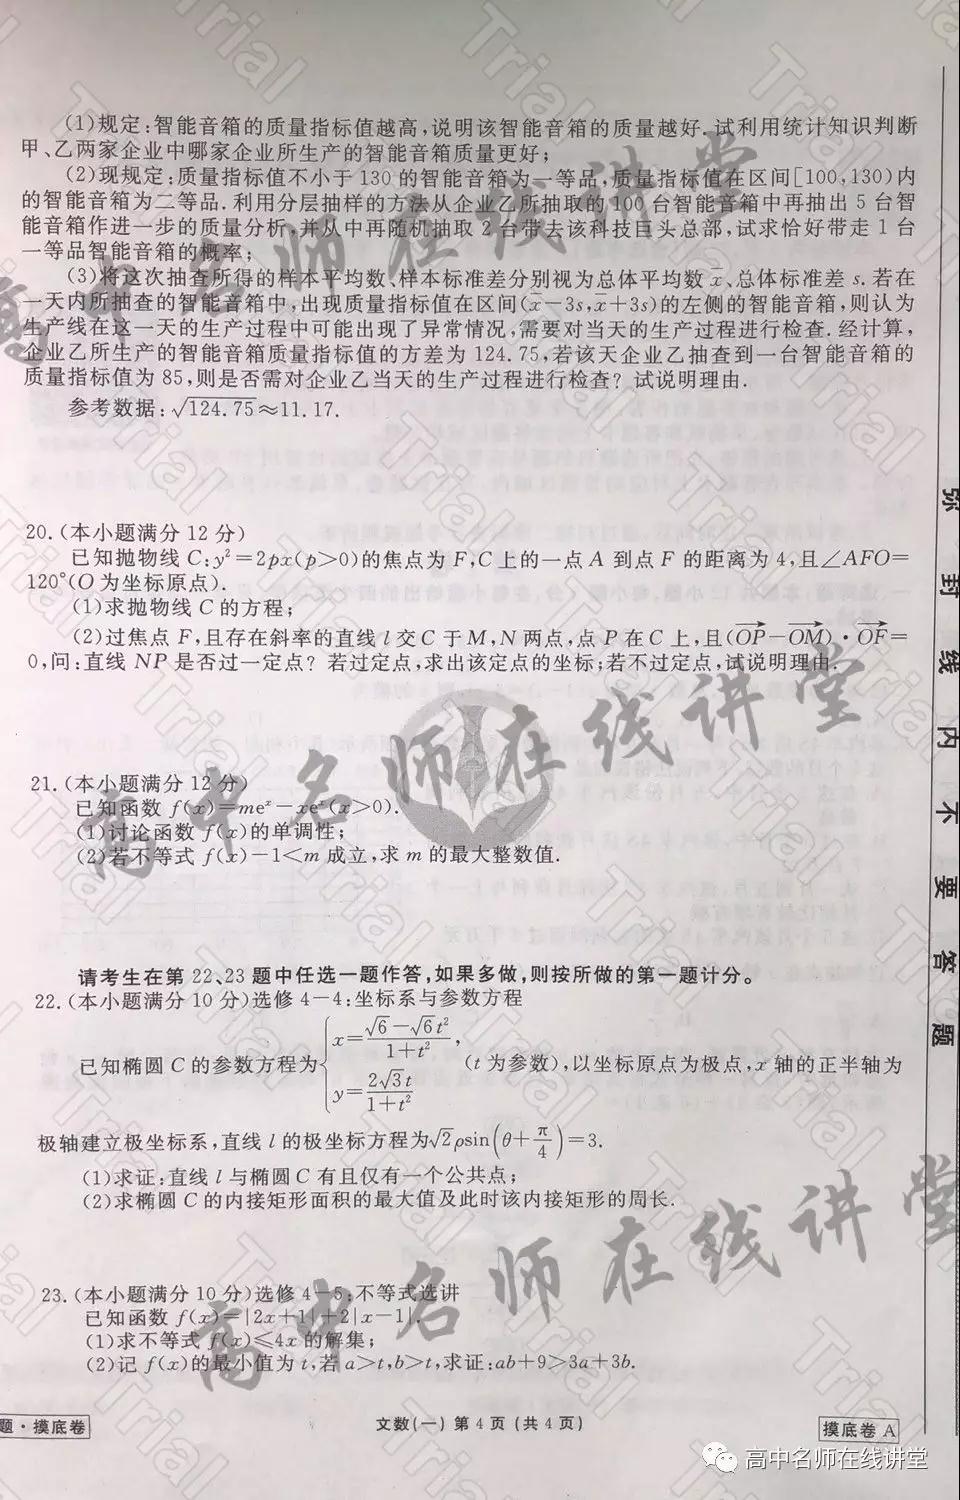 (1)规定:智能音箱的质量指标值越高,说明该智能音箱的质量越好.试利用统计知识判断
甲、乙两家企业中哪家企业所生产的智能音箱质量更好;
(2)现规定:质量指标值不小于130的智能音箱为一等品,质量指标值在区间[100,130)内
的智能音箱为二等品.利用分层抽样的方法从企业乙所抽取的100台智能音箱中再抽出5台智
能音箱作进一步的质量分析,并从中再随机抽取2台带去该科技巨头总部,试求恰好带走1台
一等品智能音箱的概率;
(3)将这次抽查所得的样本平均数、样本标准差分别视为总体平均数x̄、总体标准差s.若在
一天内所抽查的智能音箱中,出现质量指标值在区间(x̄-3s,x̄+3s)的左侧的智能音箱,则认为
生产线在这一天的生产过程中可能出现了异常情况,需要对当天的生产过程进行检查.经计算,
企业乙所生产的智能音箱质量指标值的方差为124.75,若该天企业乙抽查到一台智能音箱的
质量指标值为85,则是否需对企业乙当天的生产过程进行检查?试说明理由.
参考数据:√124.75≈11.17.
20.(本小题满分12分)
已知抛物线C:y²=2px(p>0)的焦点为F,C上的一点A到点F的距离为4,且∠AFO=
120°(O为坐标原点).
(1)求抛物线C的方程;
(2)过焦点F,且存在斜率的直线l交C于M,N两点,点P在C上,且(OP→-OM→)·OF→=
0,问:直线NP是否过一定点?若过定点,求出该定点的坐标;若不过定点,试说明理由.
21.(本小题满分12分)
已知函数f(x)=meˣ-xeˣ(x>0).
(1)讨论函数f(x)的单调性;
(2)若不等式f(x)-1<m成立,求m的最大整数值.
请考生在第22、23题中任选一题作答,如果多做,则按所做的第一题计分。
22.(本小题满分10分)选修4-4:坐标系与参数方程
已知椭圆C的参数方程为{x=(√6-√6t²)/(1+t²), y=2√3t/(1+t²) (t为参数),以坐标原点为极点,x轴的正半轴为
极轴建立极坐标系,直线l的极坐标方程为√2ρsin(θ+π/4)=3.
(1)求证:直线l与椭圆C有且仅有一个公共点;
(2)求椭圆C的内接矩形面积的最大值及此时该内接矩形的周长.
23.(本小题满分10分)选修4-5:不等式选讲
已知函数f(x)=|2x+1|+2|x-1|.
(1)求不等式f(x)≤4x的解集;
(2)记f(x)的最小值为t,若a>t,b>t,求证:ab+9>3a+3b.
题·摸底卷
文数(一) 第4页(共4页)
摸底卷 A
弥封线内不要答题
高中名师在线讲堂
高中名师在线讲堂
高中名师在线讲堂
高中名师在线讲堂
Trial